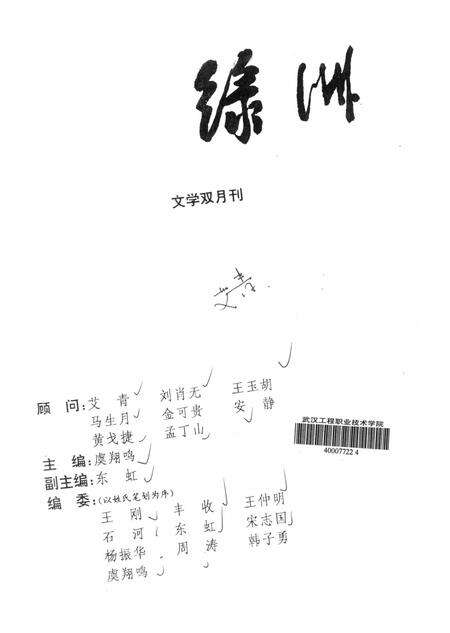 绿洲
文学双月刊
艾青
顾 问:艾 青 刘肖无 王玉胡
马生月 金可贵 安 静
黄戈捷 孟丁山
主 编:虞翔鸣
副主编:东 虹
编 委:(以姓氏笔划为序)
王 刚 丰 收 王仲明
石 河 东 虹 宋志国
杨振华 周 涛 韩子勇
虞翔鸣
武汉工程职业技术学院
40007722 4